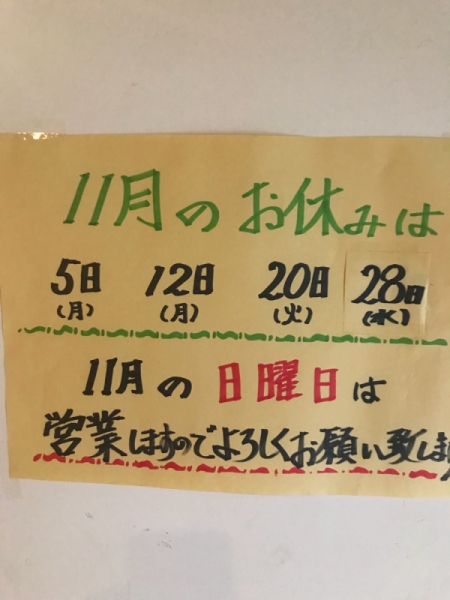 11月のお休みは
5日 12日 20日 28日
(月) (月) (火) (水)
11月の日曜日は
営業しますのでよろしくお願い致します